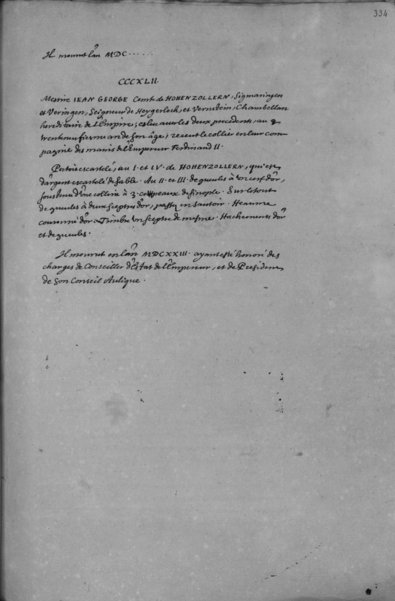 334
Il mourut l'an MDC......
CCCXLII
Messire JEAN GEORGE Comte de HOHENZOLLERN, Sigmaringen
et Veringen, Seigneur de Heygerloch, et Verstein, Chambellan
hereditaire de l'Empire; esleu avec les deux precedents, au
trentiesme de son âge; receut le collier en leur com-
pagnie des mains de l'Empereur Ferdinand II.
Portoit escartelé, au I. et IV. de HOHENZOLLERN, qui est
d'argent escartelé de sable. Au II. et III. de gueuls à un cerf d'or,
soustenu d'une colline à 3. coupeaux de sinople. Sur le tout
de gueuls à deux sceptres d'or, passez en sautoir. Heaume
couronné d'or. Timbre un sceptre de mesme. Hachements d'or
et de gueuls.
Il mourut en l'an MDCXXIII. ayant esté honoré des
charges de Conseiller d'Estat de l'Empereur, et de President
de son Conseil Aulique.